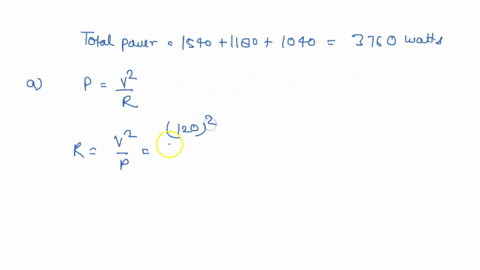 Total power = 1540 + 1180 + 1040 = 3760 watts
a) P = V²/R
R = V²/P = (120)²